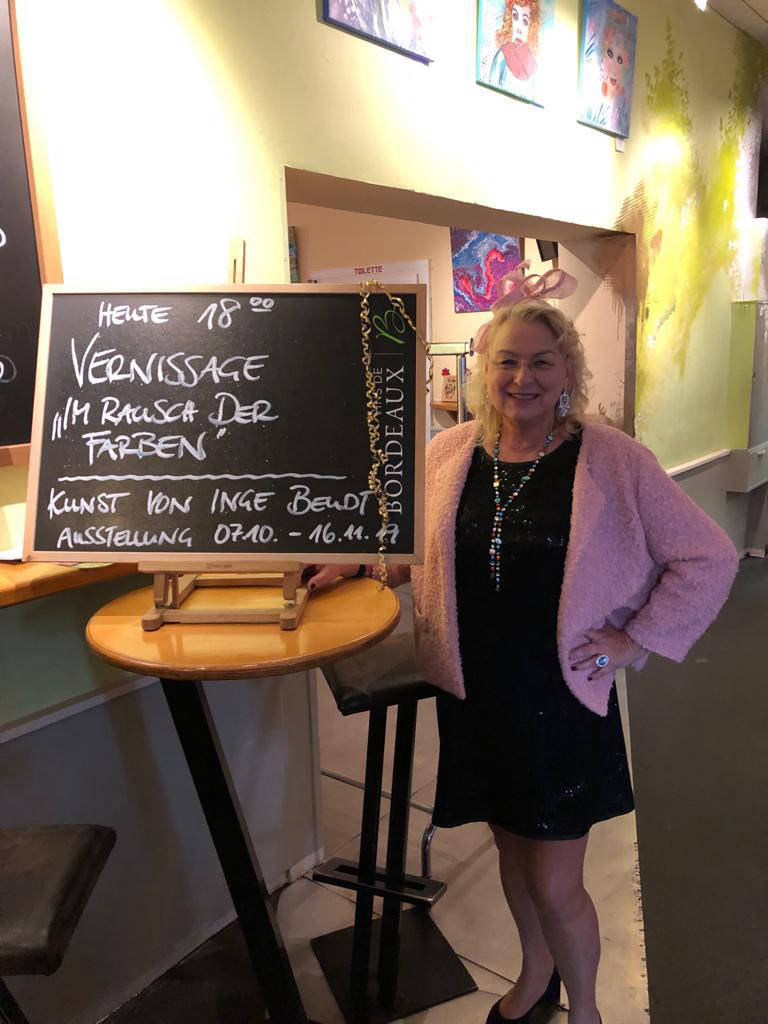 HEUTE 18⁰⁰
VERNISSAGE
„IM RAUSCH DER
FARBEN“
KUNST VON INGE BENDT
AUSSTELLUNG 07.10. - 16.11.19
BORDEAUX
B
TOILETTE